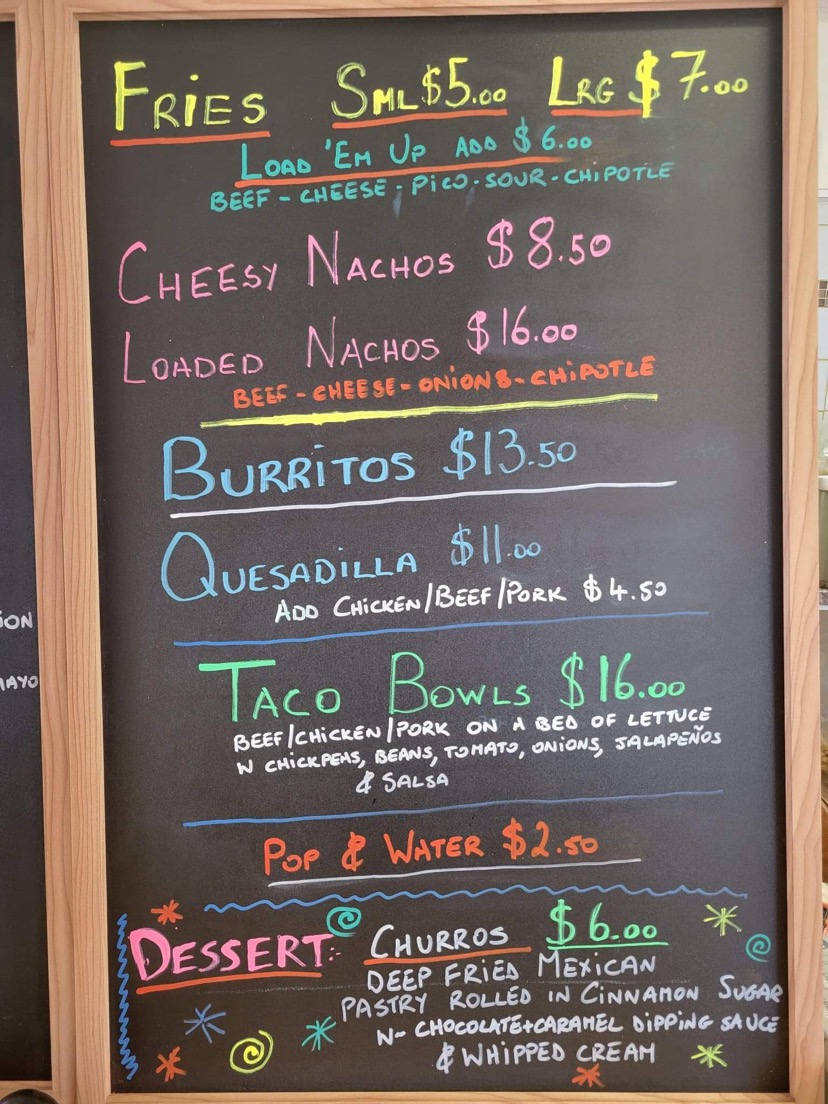 FRIES SML $5.00 LRG $7.00
LOAD 'EM UP ADD $6.00
BEEF - CHEESE - PICO - SOUR - CHIPOTLE
CHEESY NACHOS $8.50
LOADED NACHOS $16.00
BEEF - CHEESE - ONIONS - CHIPOTLE
BURRITOS $13.50
QUESADILLA $11.00
ADD CHICKEN/BEEF/PORK $4.50
TACO BOWLS $16.00
BEEF/CHICKEN/PORK ON A BED OF LETTUCE
W CHICKPEAS, BEANS, TOMATO, ONIONS, JALAPEÑOS
& SALSA
POP & WATER $2.50
DESSERT:- CHURROS $6.00
DEEP FRIED MEXICAN
PASTRY ROLLED IN CINNAMON SUGAR
W- CHOCOLATE+CARAMEL DIPPING SAUCE
& WHIPPED CREAM
ION
MAYO